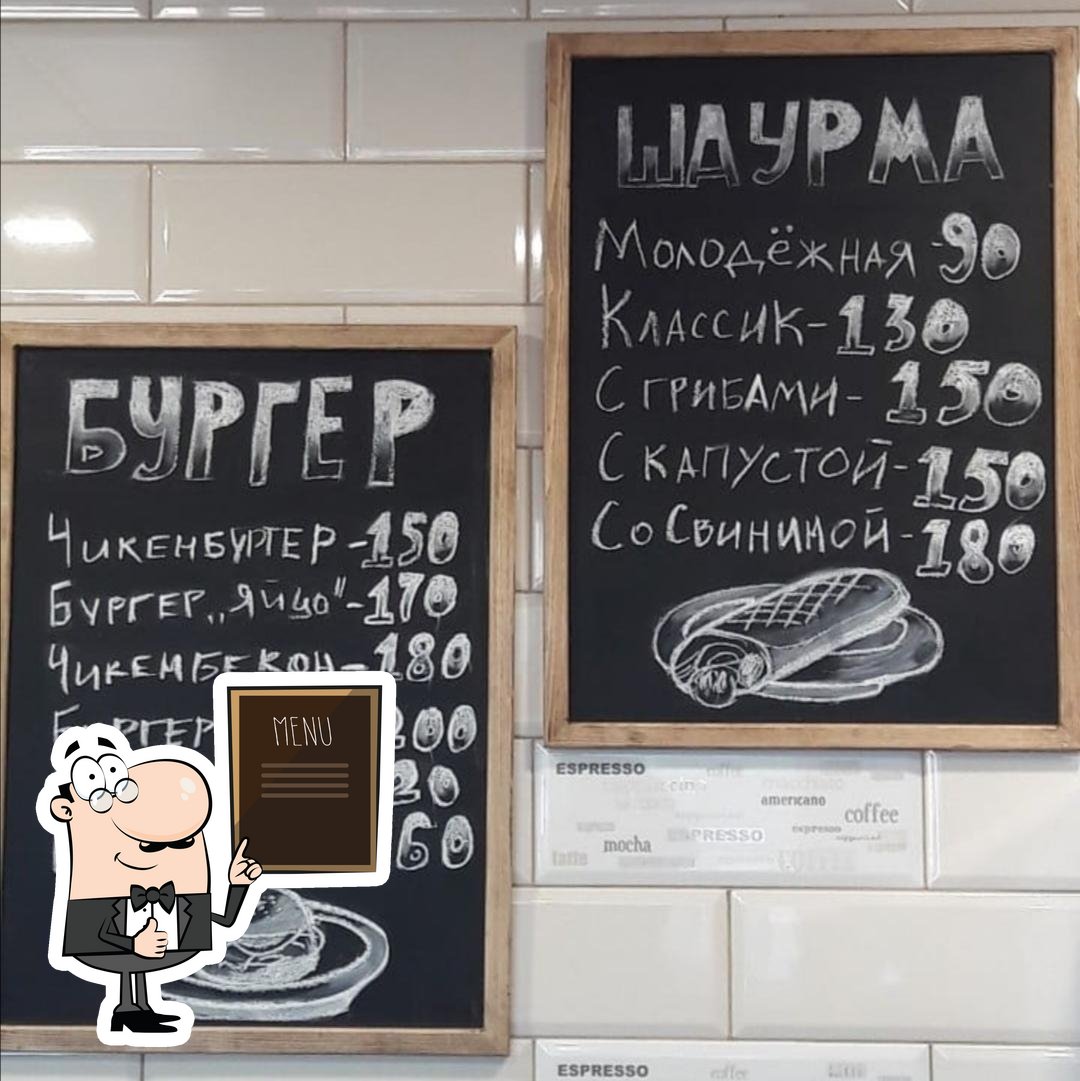 ШАУРМА
Молодёжная - 90
Классик - 130
С грибами - 150
С капустой - 150
Со Свининой - 180
БУРГЕР
Чикенбургер - 150
Бургер „Яйцо" - 170
Чикембекон - 180
Бургер 200
20
60
MENU
ESPRESSO coffee
americano
coffee
espresso
mocha ESPRESSO
latte
ESPRESSO coffee